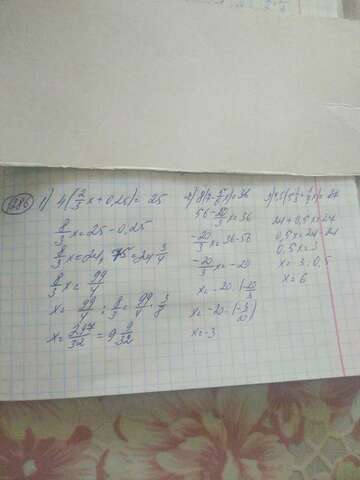 1286
1) 4(2/3 x + 0,25) = 25
8/3 x = 25 - 0.25
8/3 x = 24,75 = 24 3/4
8/3 x = 99/4
x = 99/4 : 8/3 = 99/4 · 3/8
x = 297/32 = 9 9/32
= 36
56 - 20/3 x = 36
-20/3 x = 36 - 56
-20/3 x = -20
x = -20 · (
x = -20 · (-3/
x = 3
24 + 0,5x = 24
0,5x =
0,5x = 3
x = 3 : 0,5
x = 6